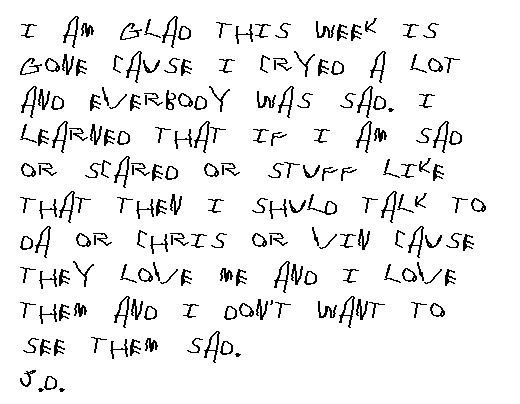 I AM GLAD THIS WEEK IS
GONE CAUSE I CRYED A LOT
AND EVERBODY WAS SAD. I
LEARNED THAT IF I AM SAD
OR SCARED OR STUFF LIKE
THAT THEN I SHULD TALK TO
DA OR CHRIS OR VIN CAUSE
THEY LOVE ME AND I LOVE
THEM AND I DON'T WANT TO
SEE THEM SAD.
J.D.